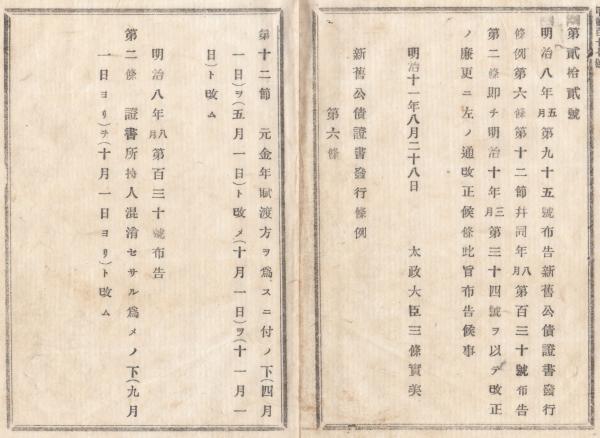 第貳拾貳號
明治八年五月第九十五號布告新舊公債證書發行
條例第六條第十二節幷同年八月第百三十號布告
第二條即チ明治十年三月第三十四號ヲ以テ改正
ノ廉更ニ左ノ通改正候條此旨布告候事
明治十一年八月二十八日 太政大臣三條實美
新舊公債證書發行條例
第六條
第十二節 元金年賦渡方ヲ爲スニ付ノ下(四月
一日)ヲ(五月一日)ト改メ(十月一日)ヲ(十一月一
日)ト改ム
明治八年八月第百三十號布告
第二條 證書所持人混淆セサル爲メノ下(九月
一日ヨリ)ヲ(十月一日ヨリ)ト改ム